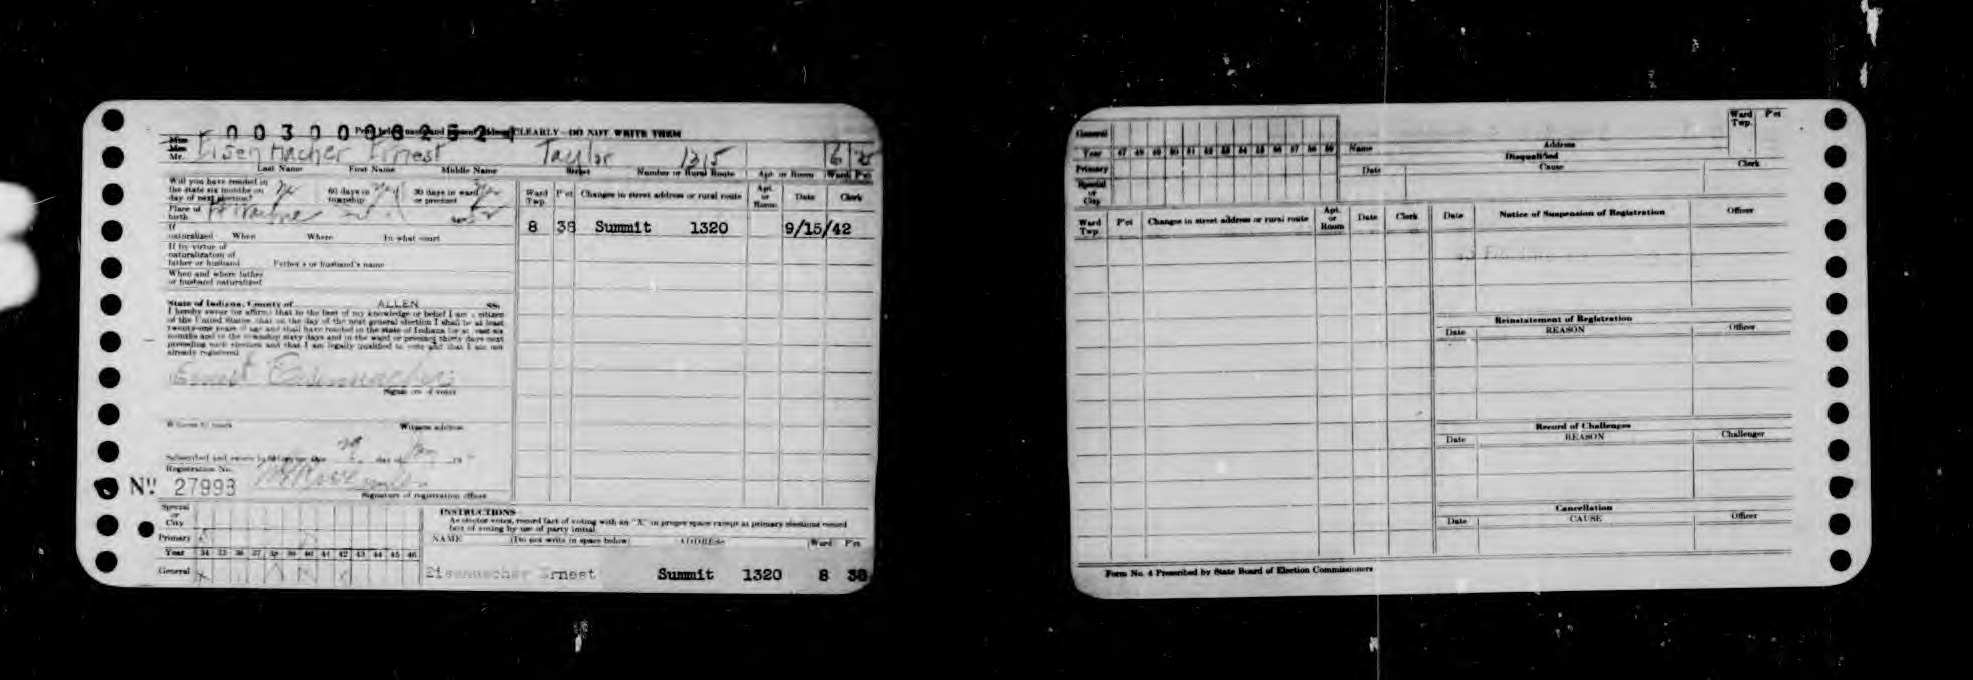 CLEARLY—DO NOT WRITE THEM
Mr. Eisenmacher Ernest Taylor 1315 6
Last Name First Name Middle Name Street Number or Rural Route Apt. or Room Ward P'ct
Will you have resided in
the state six months on 60 days in 30 days in ward
day of next election? township or precinct
Place of
birth Ft Wayne
If
naturalized When Where In what court
If by virtue of
naturalization of
father or husband Father's or husband's name
When and where father
or husband naturalized
State of Indiana, County of ALLEN SS.
I hereby swear (or affirm) that to the best of my knowledge or belief I am a citizen
of the United States, that on the day of the next general election I shall be at least
twenty-one years of age and shall have resided in the state of Indiana for at least six
months and in the township sixty days and in the ward or precinct thirty days next
preceding such election and that I am legally qualified to vote and that I am not
already registered
Ernest Eisenmacher
Signature of voter
Witness to mark Witness address
Subscribed and sworn to before me this day of 19
Registration No.
No. 27993
Signature of registration officer
Ward Twp. P'ct Changes in street address or rural route Apt. or Room Date Clerk
8 38 Summit 1320 9/15/42
Special
or
City
Primary
Year 34 35 36 37 38 39 40 41 42 43 44 45 46
General
INSTRUCTIONS
As elector votes, record fact of voting with an "X" in proper space except at primary elections record
fact of voting by use of party initial.
NAME (Do not write in space below) ADDRESS Ward P'ct
Eisenmacher Ernest Summit 1320 8 38
General
Year 47 48 49 50 51 52 53 54 55 56 57 58 59
Primary
Special
or
City
Name Address Ward Twp. P'ct
Disqualified
Date Cause Clerk
Ward Twp. P'ct Changes in street address or rural route Apt. or Room Date Clerk
Date Notice of Suspension of Registration Officer
Reinstatement of Registration
Date REASON Officer
Record of Challenges
Date REASON Challenger
Cancellation
Date CAUSE Officer
Form No. 4 Prescribed by State Board of Election Commissioners